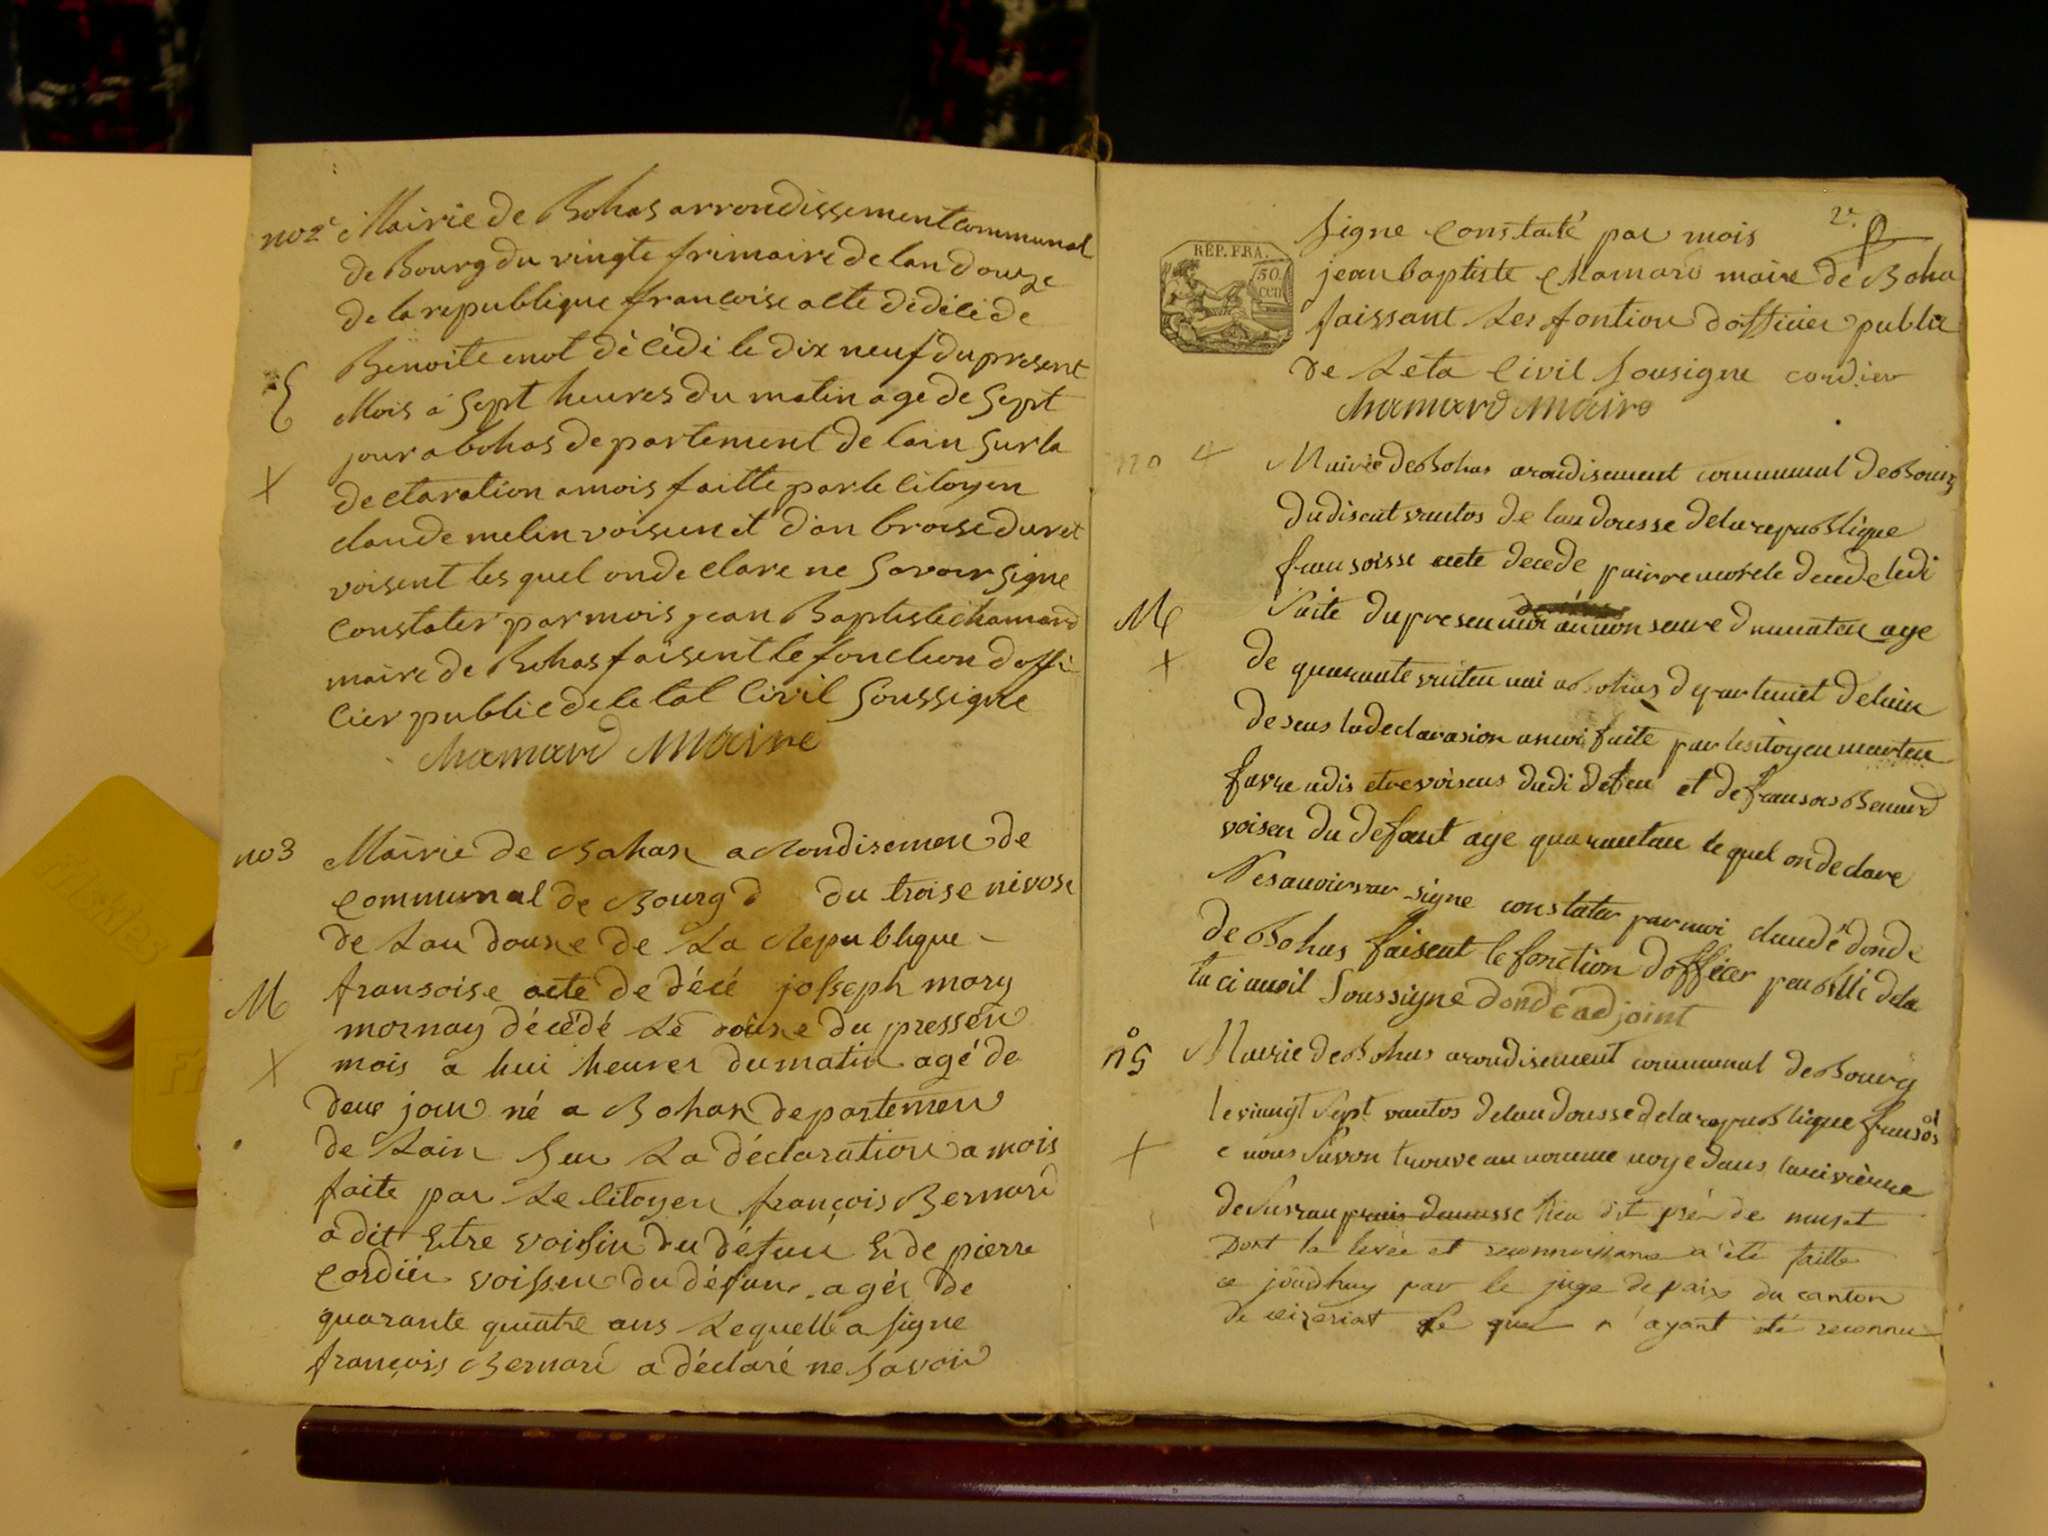 no 2 Mairie de Bohas arrondissement communal
de Bourg du vingte frimaire de lan douze
de la republique francoise acte dedéié de
Benoite enot décédi le dix neuf du present
Mois a Sept heures du matin age de Sept
jour a bohas departement de lain Sur la
declaration a mois faitte par le Citoyen
claude melin voisin et d'an broise duret
voisent les quel on declare ne Savoir signe
Constater par mois jean Baptiste chamard
maire de Bohas faisent le fonction d offi
cier public de letat Civil Soussigne
chamard maire
no 3 Mairie de Bohas arondisemen de
communal de Bourg du troise nivose
de Lan douse de La Republique
M fransoise acte de décé joSseph mary
mornay décédé Le du pressen
mois a hui heures du matin agé de
deux jour né a Bohas departemen
de Lain Sur La déclaration a mois
faite par Le Citoyen françois Bernard
a dit Etre voisin du défun & de pierre
Cordier voissen du défun agés de
quarante quatre ans Lequelle a signe
françois Bernard a déclaré ne Savoir
2e
REP. FRA.
50. cen
Signe Constaté par mois
jean baptiste chamard maire de Boha
faissant Les fontion d officier public
de Leta Civil Sousigne cordier
chamard maire
no 4 Mairie de Bohas arondisement communal de Bourg
du diseut vantos de lan dousse de la republique
fransoisse acte decede decede ledi
M Saite du presen
de quarante a bohas departemet de lain
de sus la declarasion a moi faite par le sitoyen marten
favre adis etre voisens dudi defen et de fransois Benard
voisen du defunt age quarantan le quel on declare
Ne savoir signe constater par moi claude donde
de Bohas faisent le fonction d officer peublli dela
Soussigne donde adjoint
no 5 Mairie de Bohas arondisement communal de Bourg
le viangt Sept vantos de lan dousse de la republique fransois
e nous Savon trouve au nomme noye dans la rivierre
de Surran lieu dit pré de musat
Dont la levée et reconnoissance a été faitte
ce jourdhuy par le juge de paix du canton
de ceizeriat n'ayant été reconnu